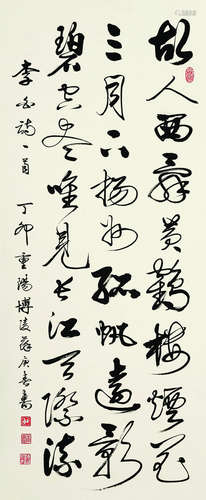 故人西辭黃鶴樓煙花
三月下揚州孤帆遠影
碧空尽唯見长江天際流
李白詩一首 丁卯重陽博陵蘇庚春書